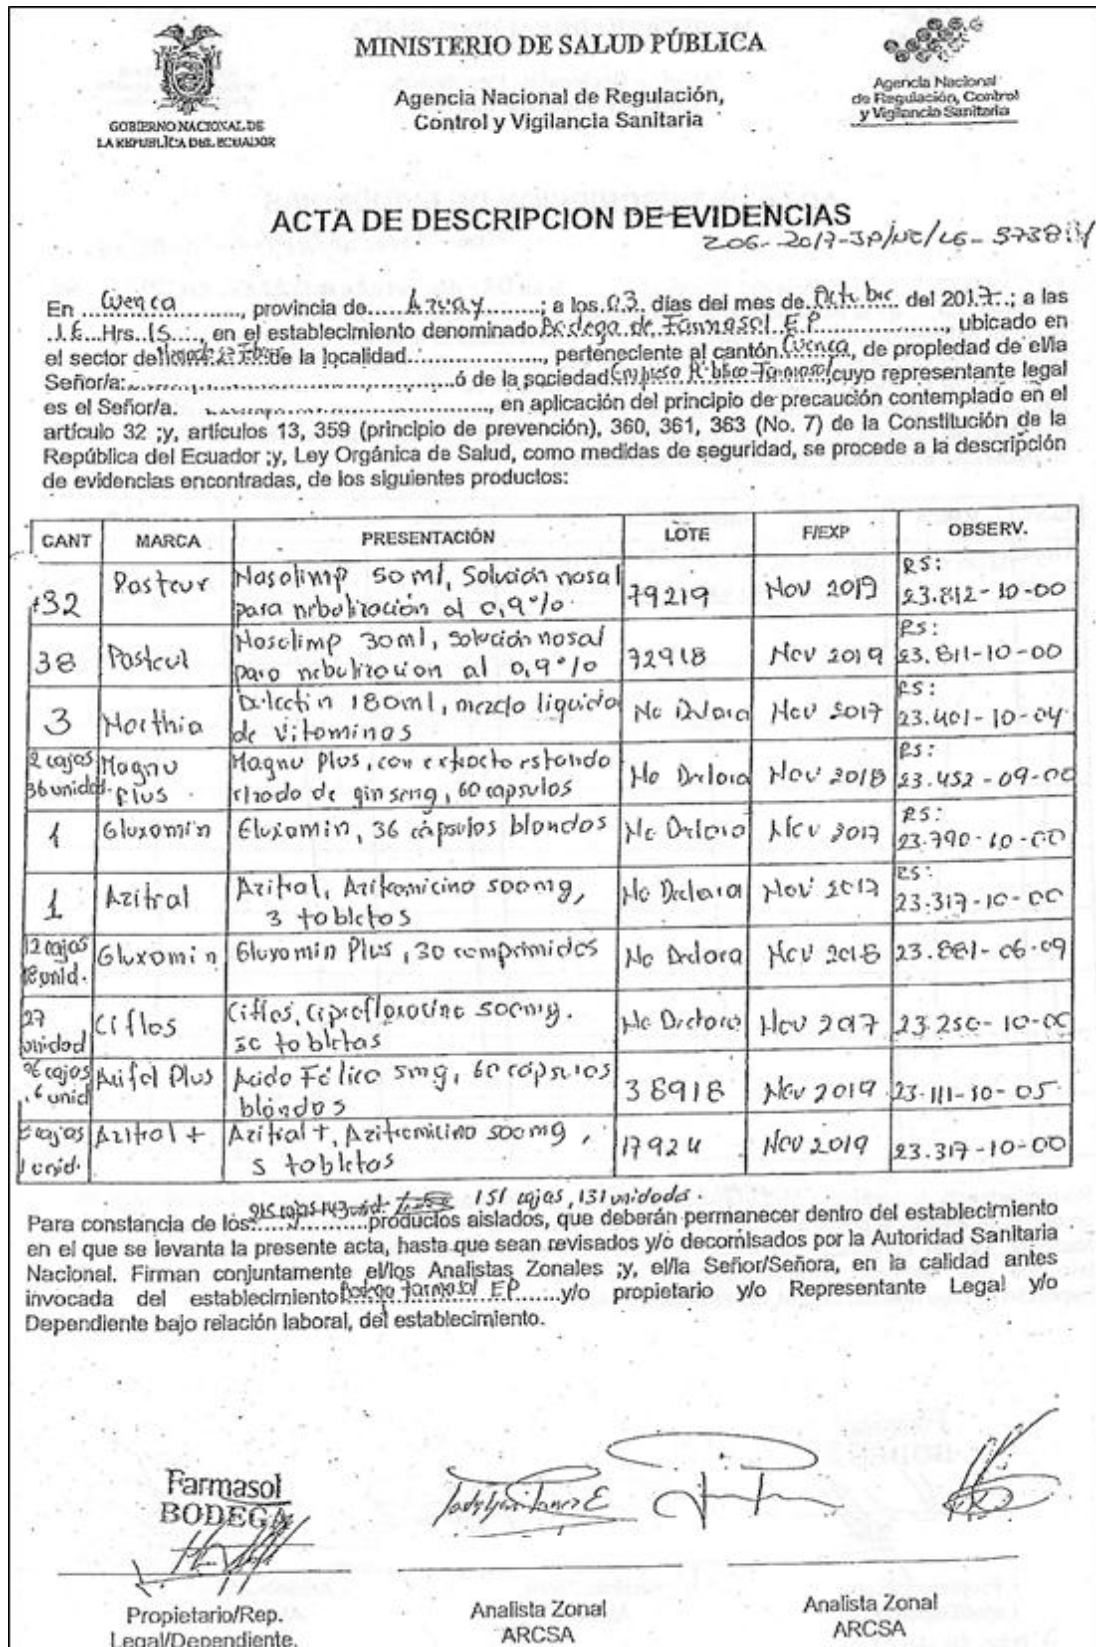 MINISTERIO DE SALUD PÚBLICA
Agencia Nacional de Regulación,
Control y Vigilancia Sanitaria
GOBIERNO NACIONAL DE
LA REPUBLICA DEL ECUADOR
Agencia Nacional
de Regulación, Control
y Vigilancia Sanitaria
ACTA DE DESCRIPCION DE EVIDENCIAS
En Cuenca, provincia de Azuay; a los 03 días del mes de Octubre del 2017; a las
16 Hrs 15, en el establecimiento denominado Bodega de Farmasol EP, ubicado en
el sector de la localidad, perteneciente al cantón Cuenca, de propiedad de el/la
Señor/a: ó de la sociedad Empresa Pública Farmasol cuyo representante legal
es el Señor/a. , en aplicación del principio de precaución contemplado en el
artículo 32 ;y, artículos 13, 359 (principio de prevención), 360, 361, 363 (No. 7) de la Constitución de la
República del Ecuador ;y, Ley Orgánica de Salud, como medidas de seguridad, se procede a la descripción
de evidencias encontradas, de los siguientes productos:
CANT MARCA PRESENTACIÓN LOTE F/EXP OBSERV.
132 Pasteur Nasolimp 50 ml, Solución nasal para nebulización al 0,9% 79219 Nov 2019 RS: 23.812-10-00
38 Pasteur Nasolimp 30ml, solución nasal para nebulizacion al 0,9% 72918 Nov 2019 RS: 23.811-10-00
3 180ml, mezcla liquida de vitaminas No Declara Nov 2017 RS: 23.401-10-04
2 cajas 36 unidad. Magnu Plus Magnu Plus, con extracto estandarizado de ginseng, 60 capsulas No Declara Nov 2018 RS: 23.452-09-00
1 Gluxomin Gluxomin, 36 cápsulas blandas No Declara Nov RS: 23.790-10-00
1 Azitral Azitral, Azitromicina 500mg, 3 tabletas No Declara Nov 2017 RS: 23.317-10-00
12 cajas 18 unid. Gluxomin Gluxomin Plus, 30 comprimidos No Declara Nov 2018 23.881-06-09
27 unidad Ciflos Ciflos, ciprofloxacino 500mg. 50 tabletas No Declara Nov 2017 23.250-10-00
cajas, 6 unid Plus Acido Fólico 5mg, 60 cápsulas blandas 38918 Nov 2019 23-111-10-05
cajas 1 unid. Azitral + Azitral +, Azitromicino 500mg, 5 tabletas 17924 Nov 2019 23.317-10-00
151 cajas, 131 unidades.
Para constancia de los productos aislados, que deberán permanecer dentro del establecimiento
en el que se levanta la presente acta, hasta que sean revisados y/o decomisados por la Autoridad Sanitaria
Nacional. Firman conjuntamente el/los Analistas Zonales ;y, el/la Señor/Señora, en la calidad antes
invocada del establecimiento Bodega Farmasol EP y/o propietario y/o Representante Legal y/o
Dependiente bajo relación laboral, del establecimiento.
Farmasol
BODEGA
Propietario/Rep.
Legal/Dependiente.
Analista Zonal
ARCSA
Analista Zonal
ARCSA